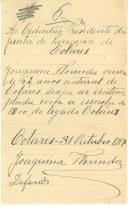 6
Ao Cidadão Presidente da
Junta de Parochia de
Collares
Joaquina Florinda viuva
de 62 annos natural de
Collares deseja ser
esmola de
do legado Collares
Collares - 31 Outubro 191
Joaquina Florinda
Deferido